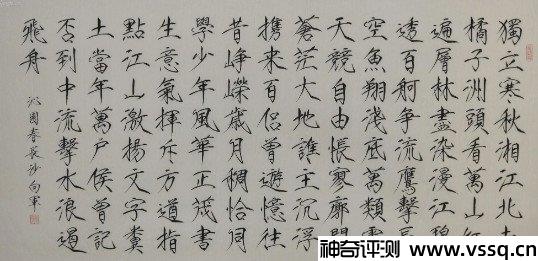 獨立寒秋湘江北去
橘子洲頭看萬山紅
遍層林盡染漫江碧
透百舸爭流鷹擊長
空魚翔淺底萬類霜
天競自由悵寥廓問
蒼茫大地誰主沉浮
携來百侣曾遊憶往
昔崢嶸歲月稠恰同
學少年風華正茂書
生意氣揮斥方遒指
點江山激揚文字糞
土當年萬户侯曾記
否到中流擊水浪遏
飛舟
沁園春長沙 向軍
神奇评测网
www.vssq.cn